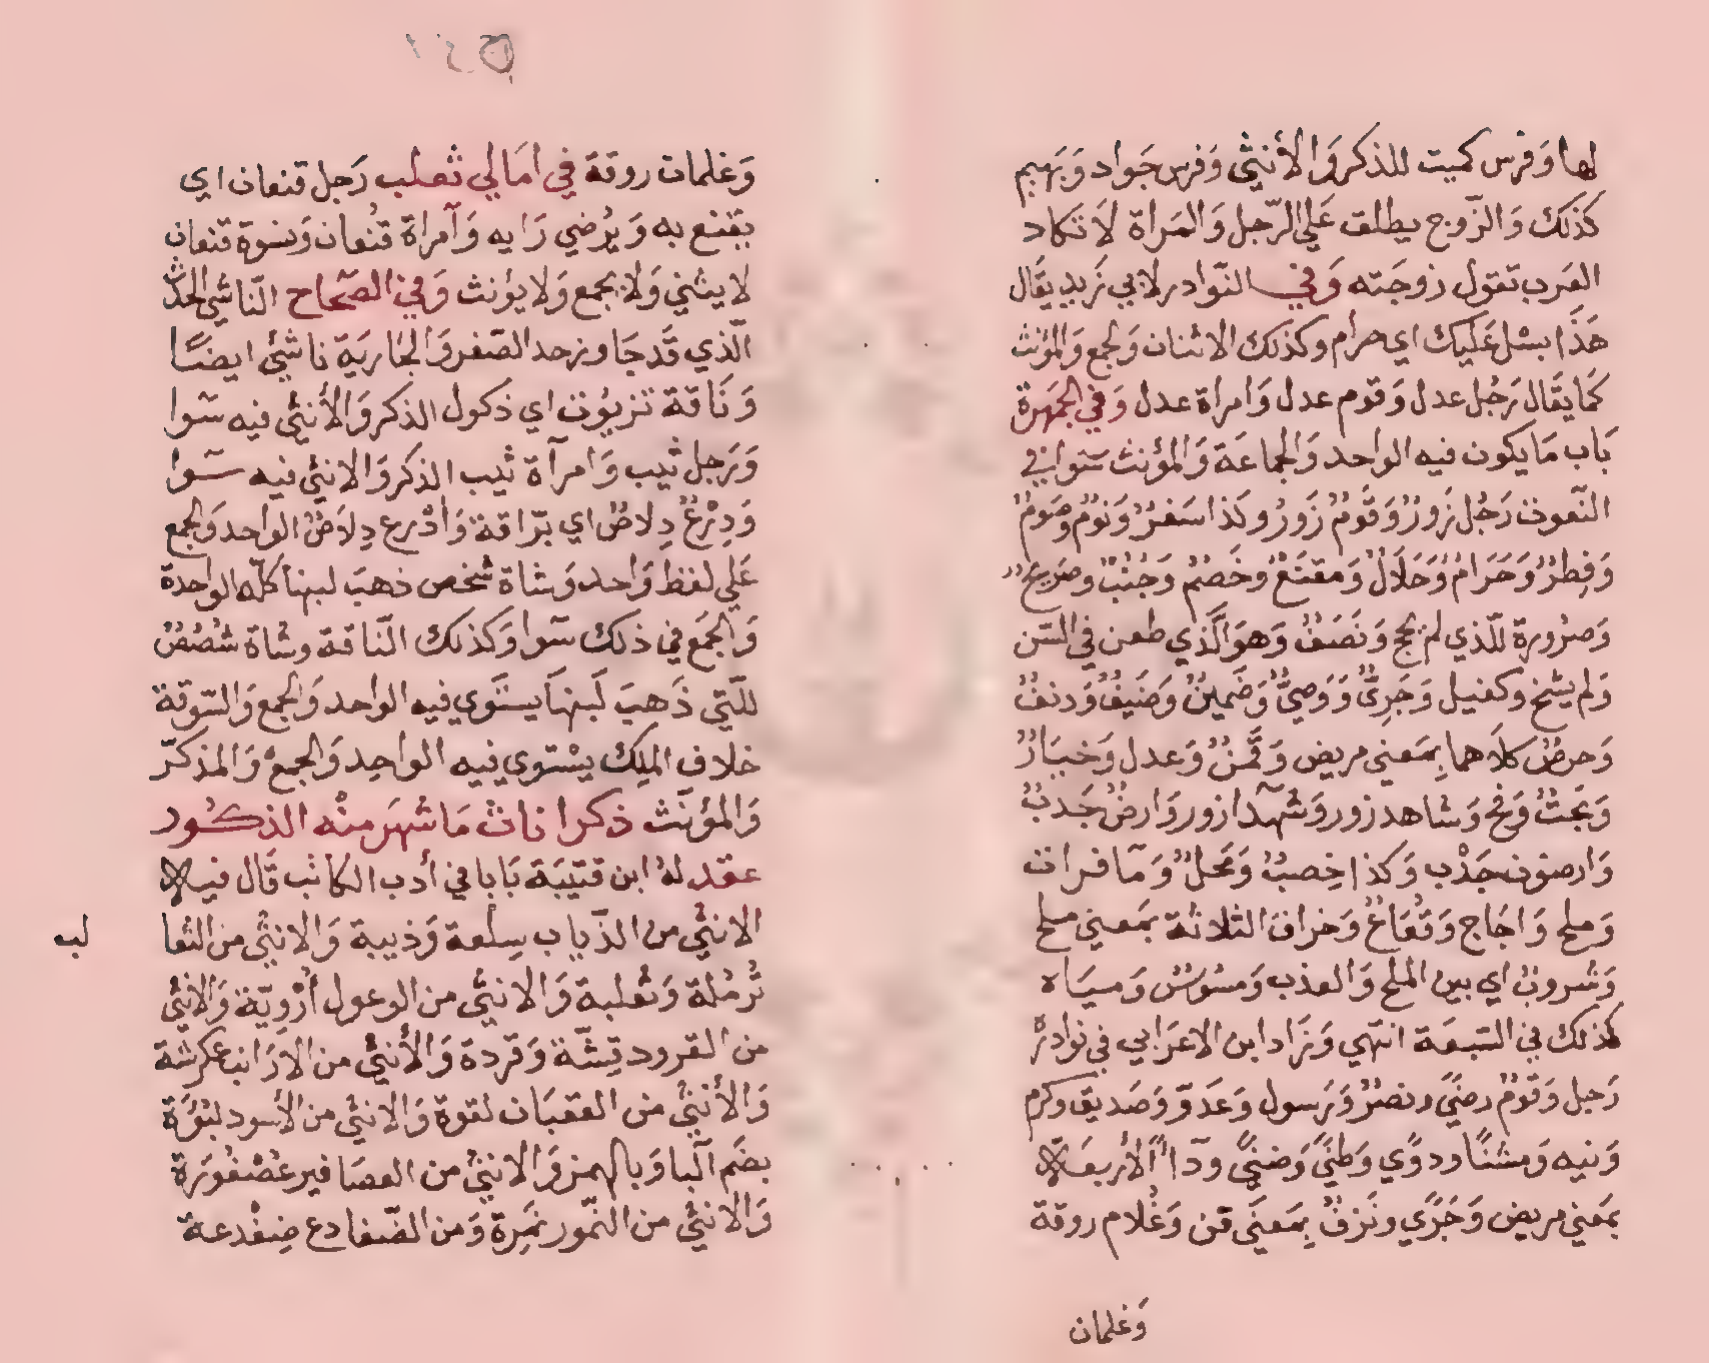 لها وَفرس كميت للذكر وَالأنثي وَفرس جَواد وَبَهيم
كذلك وَالزّوج يطلق عَلي الرّجل وَالمَراة لاَ تكاد
العَرب تقول زوجَته وَفي النّوادر لابي زَيد يقَال
هَذَا بسْل عَليك اي حرام وكذلك الاثنان وَالجمع وَالمؤنث
كمَا يقَال رَجُل عدل وَقوم عدل وَامراة عدل وَفي الجَمهرة
بَاب مَا يكون فيه الواحد وَالجماعَة وَالمؤنث سَوا في
النّعوت رَجُل زَورٌ وَقَومٌ زَورٌ وكَذا سَفرٌ وَنومٌ وصَومٌ
وَفِطرٌ وَحَرَامٌ وَحَلَالٌ وَمقنَعٌ وخَصْمٌ وَجُنُبٌ وصَريحٌ
وَصرُورة للّذي لم يحج وَنَصَفٌ وَهوَ الَّذي طعن في السّن
وَلم يشخ وكفيل وَجَرِيٌّ وَوَصيٌّ وَضَمينٌ وَضَيفٌ وَدنفٌ
وَحرضٌ كلاَهما بِمَعني مريض وَقَمنٌ وَعدل وَخيَارٌ
وَبَحتٌ وَقح وَشاهد زور وَشُهَدا زور وَارضٌ جَدبٌ
وَارضون جَدْب وَكذا خِصبٌ وَمَحلٌ وَمَا فرات
وَملح وَاجَاج وَقُعَاعٌ وَحراق الثلاثة بمَعني ملح
وَشروبٌ اي بين الملح وَالعذب وَمسُوسٌ وَميَاه
كذلك في السَّبعَة انتهي وَزَاد ابن الاعرَابي في نوادرْه
رَجل وَقَومٌ رضًي ونصرٌ وَرَسول وَعَدَوّ وَصَديق وكرم
وَنبه وَمشنَّا ودوًي وَطَنًي وَضنًي ودَآءً الأربعَة
بمَعني مريض وَحَرًي ونَزفٌ بِمَعنَي قمن وَغُلام روقة
وَغلمان
وَغلمان روقةَ فِي امَالي ثعلب رَجل قنعان اي
يقنع به وَيُرضي رَايه وَآمراة قُنعان وَنسوة قنعان
لا يثني وَلا يجمع وَلا يؤنث وَفي الصّحاح النّاشي الحدَث
الّذي قَد جَاوز حد الصّغر وَالجارِيَة ناشئ ايضًا
وَنَاقة تربُوت اي ذَكول الذكر وَالأنثي فيه سَوا
وَرَجل ثيب وَامرآة ثيب الذكر وَالانثي فيه سَوا
وَدِرْعٌ دِلاصٌ اي برّاقة وَادْرع دِلاَصٌ الواحد وَالجمع
عَلي لفظ وَاحد وَشاة شخص ذهبَ لبنهَا كلّه الواحدة
وَالجمَع في ذلك سَوا وَكذلك النّاقة وشاة شُصُصٌ
للَّتي ذَهبَ لَبنهَا يستَوي فيه الواحد وَالجمع وَالسّوقة
خلاف الملِك يسْتوي فيه الواحِد وَالجمعْ وَالمذكّر
وَالمؤنَث ذكر اناث مَا شُهرَ منْه الذكُور
عقد لهُ ابن قتَيبَة بَابا في أدب الكاتب قَال فيه
الانثي من الذّياب سِلْعة وَذيبة وَالانثي من الثعا لب
ثُرمُلة وَثعلبة وَالانثي من الوعول أُرْوِيّة وَالانثي
من القرود قِشّة وَقردة وَالأنثي من الارَانب عكرشة
وَالأنثي من العقبَان لقوة وَالانثي من الأسود لبُؤَة
بضَم البا وَبالهمز وَالانثي من العصَافير عُصْفُورَة
وَالانثي من النّمور نَمِرَة وَمن الضّفادع ضِفْدعة